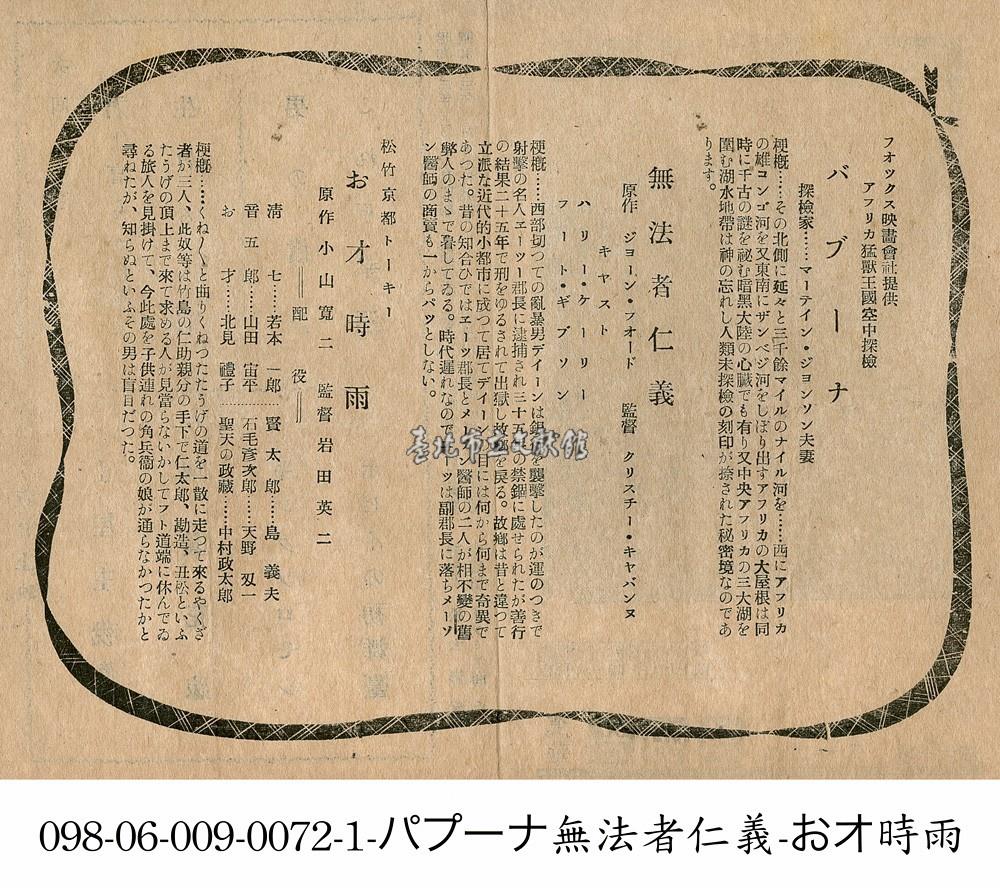 フオツクス映畫會社提供
アフリカ猛獸王國空中探檢
バブーナ
探檢家……マーテイン・ジヨンソン夫妻
梗槪……その北側に延々と三千餘マイルのナイル河を……西にアフリカ
の雄コンゴ河を又東南にザンベジ河をしぼり出すアフリカの大屋根は同
時に千古の謎を祕む暗黑大陸の心臟でも有り又中央アフリカの三大湖を
圍む湖水地帶は神の忘れし人類未探檢の刻印が捺された秘密境なのであ
ります。
無法者仁義
原作 ジヨーン・フオード 監督 クリスチー・キヤバンヌ
キヤスト
ハリー・ケーリー
フート・ギブソン
梗槪……西部切つての亂暴男デイーンは銀
を襲擊したのが運のつきで
射擊の名人エーツー郡長に逮捕され三十五年の禁錮に處せられたが善行
の結果二十五年で刑をゆるされて出獄し故鄕を戾る。故鄕は昔と違つて
立派な近代的小都市に成つて居てデイーンの目には何から何まで奇異で
あつた。昔の知合ひではエーツ郡長とメーソン醫師の二人が相不變の舊
弊人のまゝで暮してゐる。時代遲れなので
ーツは副郡長に落ちメーソ
ン醫師の商賣も一からパツとしない。
松竹京都トーキー
お才時雨
原作 小山寬二 監督 岩田英二
配役
淸七……若本一郎……賢太郎……島義夫
音五郎……山田宙平……石毛彥次郎……天野刄一
お才……北見禮子……聖天の政藏……中村政太郎
梗槪……くねく〳〵と曲りくねつたたうげの道を一散に走つて來るやくざ
者が三人、此奴等は竹島の仁助親分の手下で仁太郎、勘造、丑松といふ
たうげの頂上まで來て求める人が見當らないかしてフト道端に休んでゐ
る旅人を見掛けて、今此處を子供連れの角兵衞の娘が通らなかつたかと
尋ねたが、知らぬといふその男は盲目だつた。
臺北市立文獻館
098-06-009-0072-1-パプーナ無法者仁義-お才時雨